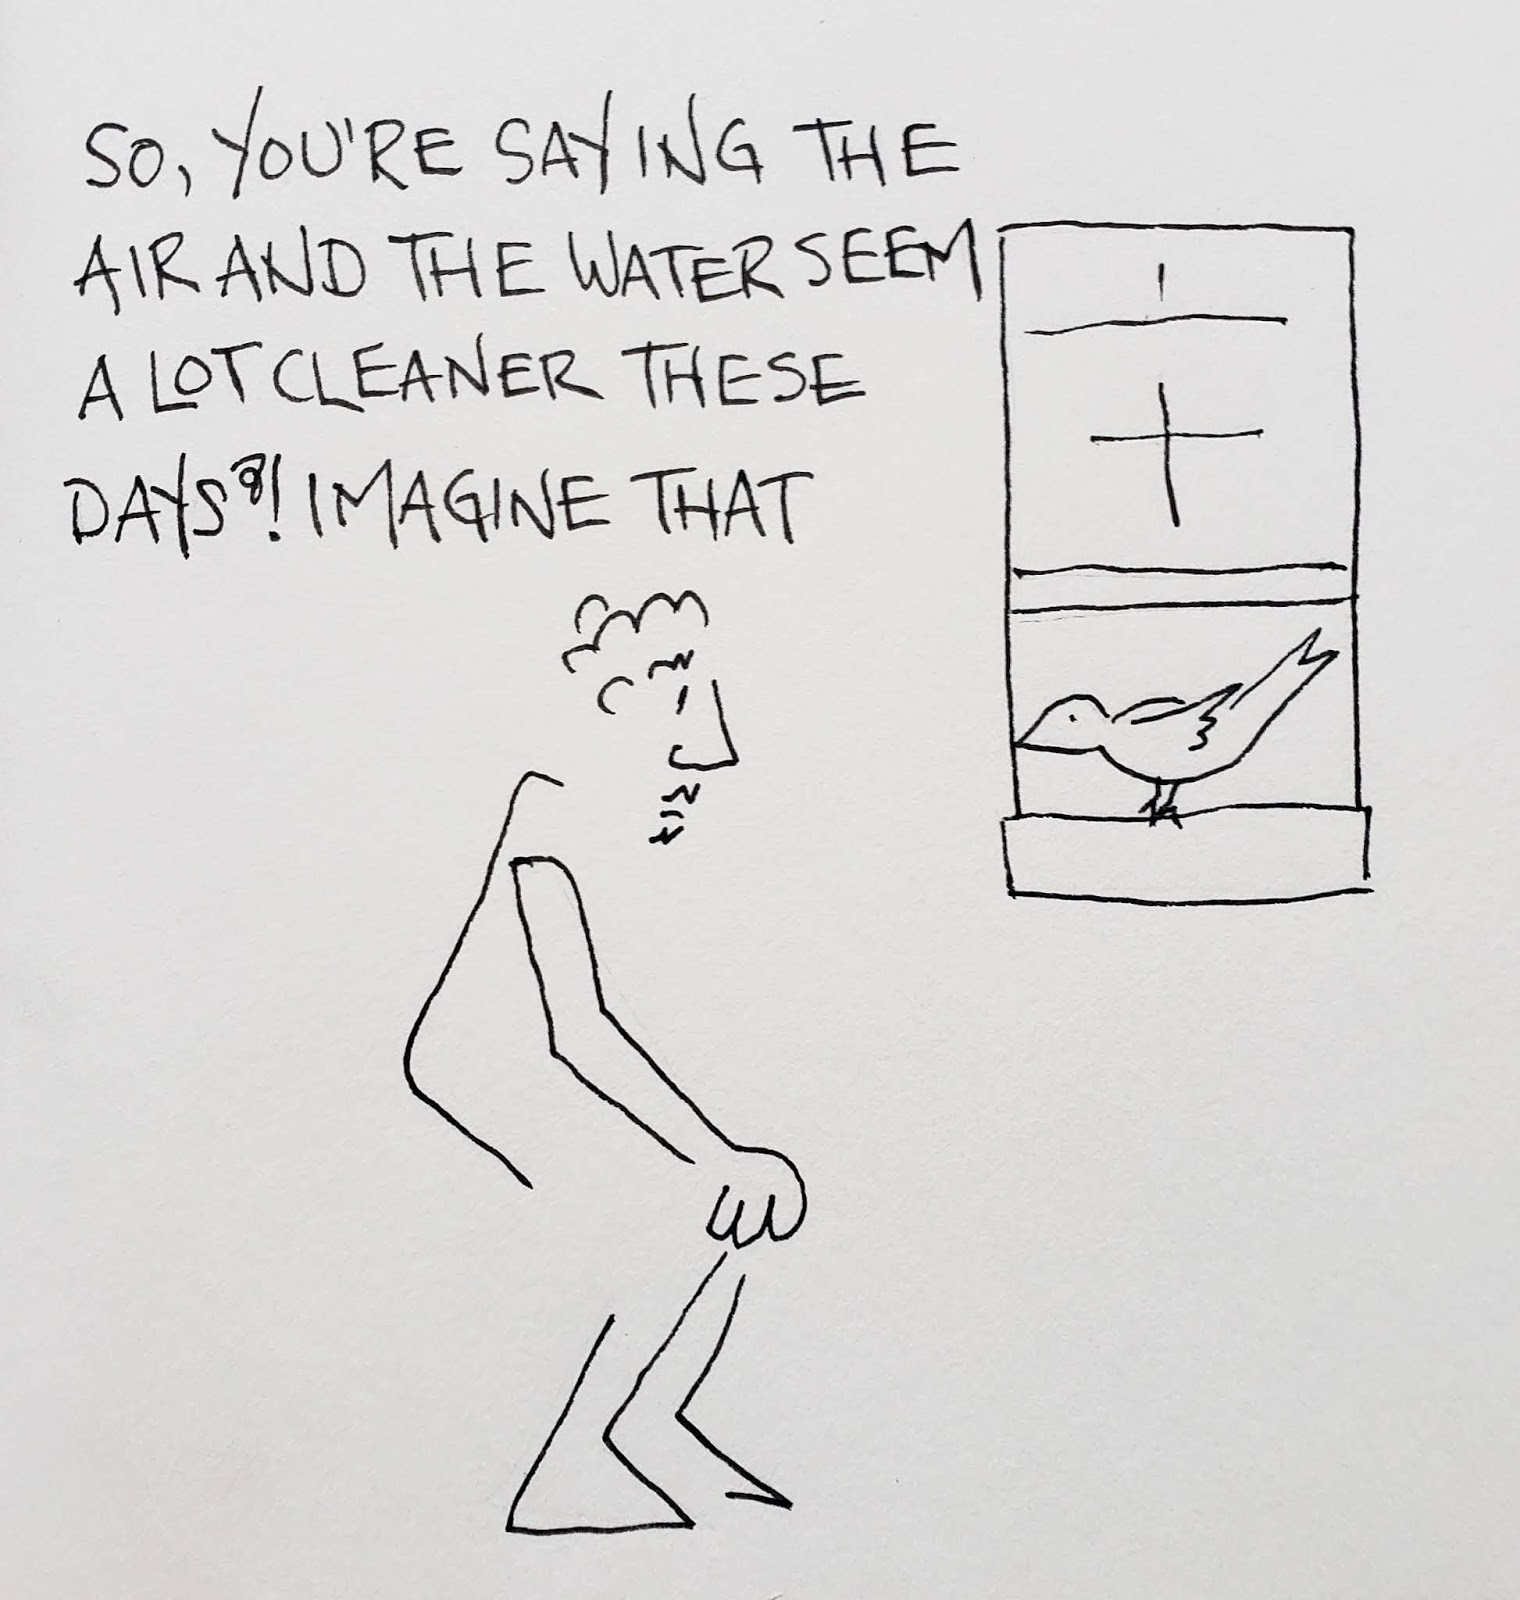 SO, YOU'RE SAYING THE
AIR AND THE WATER SEEM
A LOT CLEANER THESE
DAYS?! IMAGINE THAT